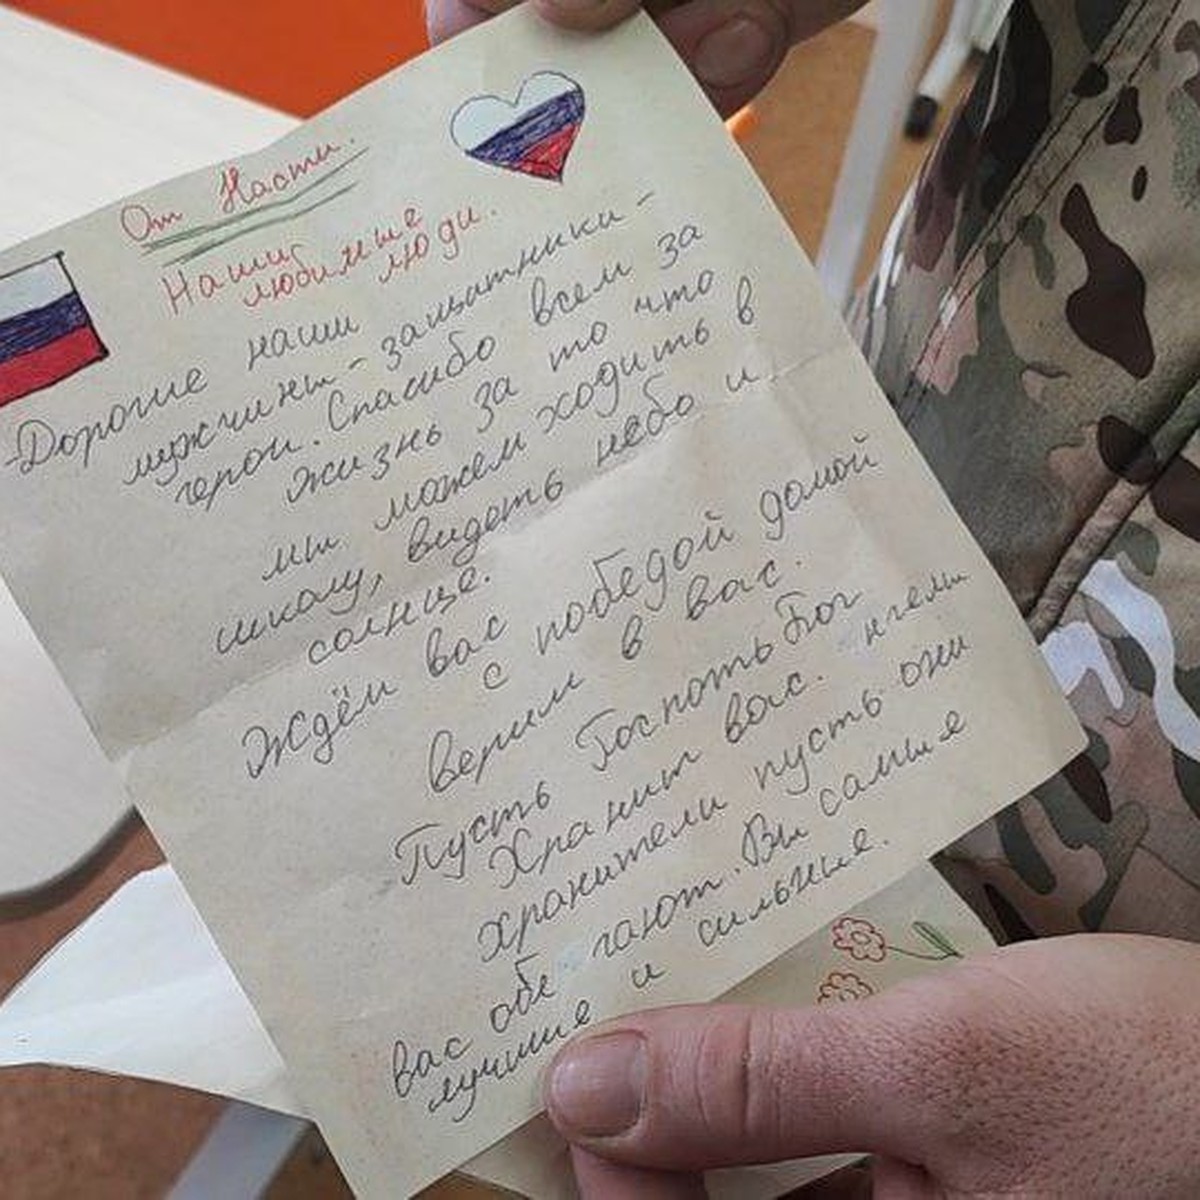 От Насти.
Наши
любимые
люди.
Дорогие наши
мужчины-защитники-
герои. Спасибо всем за
жизнь за то что
мы можем ходить в
школу, видеть небо и
солнце.
Ждём вас
с победой домой
верим в вас.
Пусть Госпоть Бог
Хранит вас. нгелы
хранители пусть они
вас обе гают. Вы самые
лучшие и сильные.